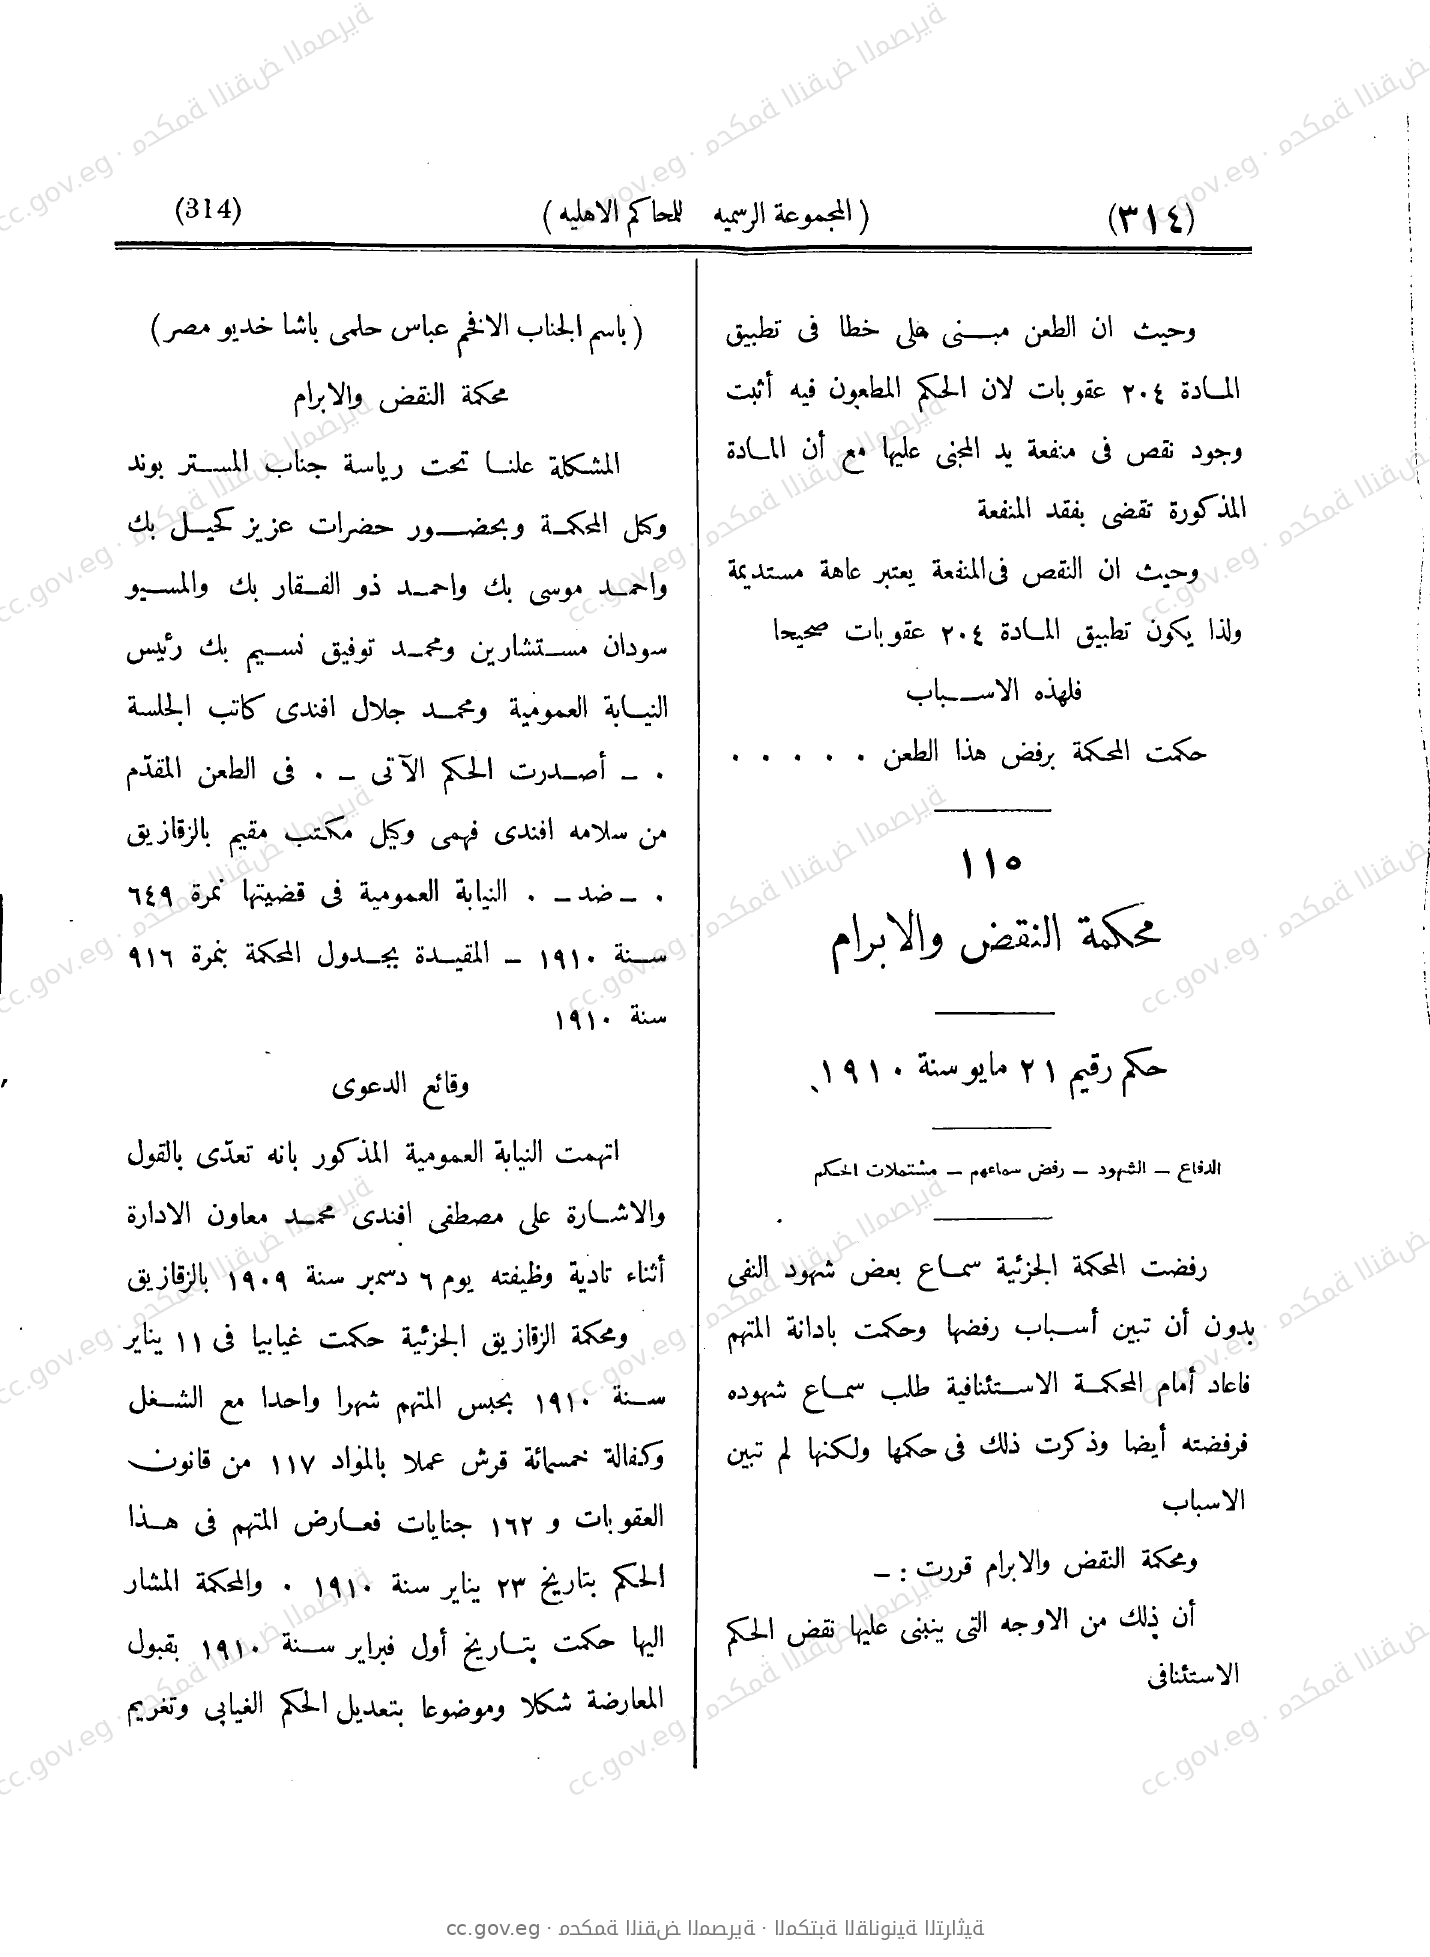 (٣١٤)
( المجموعة الرسميه للمحاكم الاهليه )
(314)
وحيث ان الطعن مبنى على خطا فى تطبيق
المادة ٢٠٤ عقوبات لان الحكم المطعون فيه أثبت
وجود نقص فى منفعة يد المجنى عليها مع أن المادة
المذكورة تقضى بفقد المنفعة
وحيث ان النقص فى المنفعة يعتبر عاهة مستديمة
ولذا يكون تطبيق المادة ٢٠٤ عقوبات صحيحا
فلهذه الاسباب
حكمت المحكمة برفض هذا الطعن . . . . .
١١٥
محكمة النقض والابرام
حكم رقيم ٢١ مايو سنة ١٩١٠
الدفاع – الشهود – رفض سماعهم – مشتملات الحكم
رفضت المحكمة الجزئية سماع بعض شهود النفى
بدون أن تبين أسباب رفضها وحكمت بادانة المتهم
فاعاد أمام المحكمة الاستئنافية طلب سماع شهوده
فرفضته أيضا وذكرت ذلك فى حكمها ولكنها لم تبين
الاسباب
ومحكمة النقض والابرام قررت : –
أن ذلك من الاوجه التى ينبنى عليها نقض الحكم
الاستئنافى
( باسم الجناب الافخم عباس حلمى باشا خديو مصر )
محكمة النقض والابرام
المشكلة علنا تحت رياسة جناب المستر بوند
وكيل المحكمة وبحضور حضرات عزيز كحيل بك
واحمد موسى بك واحمد ذو الفقار بك والمسيو
سودان مستشارين ومحمد توفيق نسيم بك رئيس
النيابة العمومية ومحمد جلال افندى كاتب الجلسة
. – أصدرت الحكم الآتى – . فى الطعن المقدّم
من سلامه افندى فهمى وكيل مكتب مقيم بالزقازيق
. – ضد – . النيابة العمومية فى قضيتها نمرة ٦٤٩
سنة ١٩١٠ – المقيدة بجدول المحكمة بنمرة ٩١٦
سنة ١٩١٠
وقائع الدعوى
اتهمت النيابة العمومية المذكور بانه تعدّى بالقول
والاشارة على مصطفى افندى محمد معاون الادارة
أثناء تادية وظيفته يوم ٦ دسمبر سنة ١٩٠٩ بالزقازيق
ومحكمة الزقازيق الجزئية حكمت غيابيا فى ١١ يناير
سنة ١٩١٠ بحبس المتهم شهرا واحدا مع الشغل
وكفالة خمسمائة قرش عملا بالمواد ١١٧ من قانون
العقوبات و ١٦٢ جنايات فعارض المتهم فى هذا
الحكم بتاريخ ٢٣ يناير سنة ١٩١٠ . والمحكمة المشار
اليها حكمت بتاريخ أول فبراير سنة ١٩١٠ بقبول
المعارضة شكلا وموضوعا بتعديل الحكم الغيابى وتغريم
cc.gov.eg · محكمة النقض المصرية · المكتبة القانونية التراثية